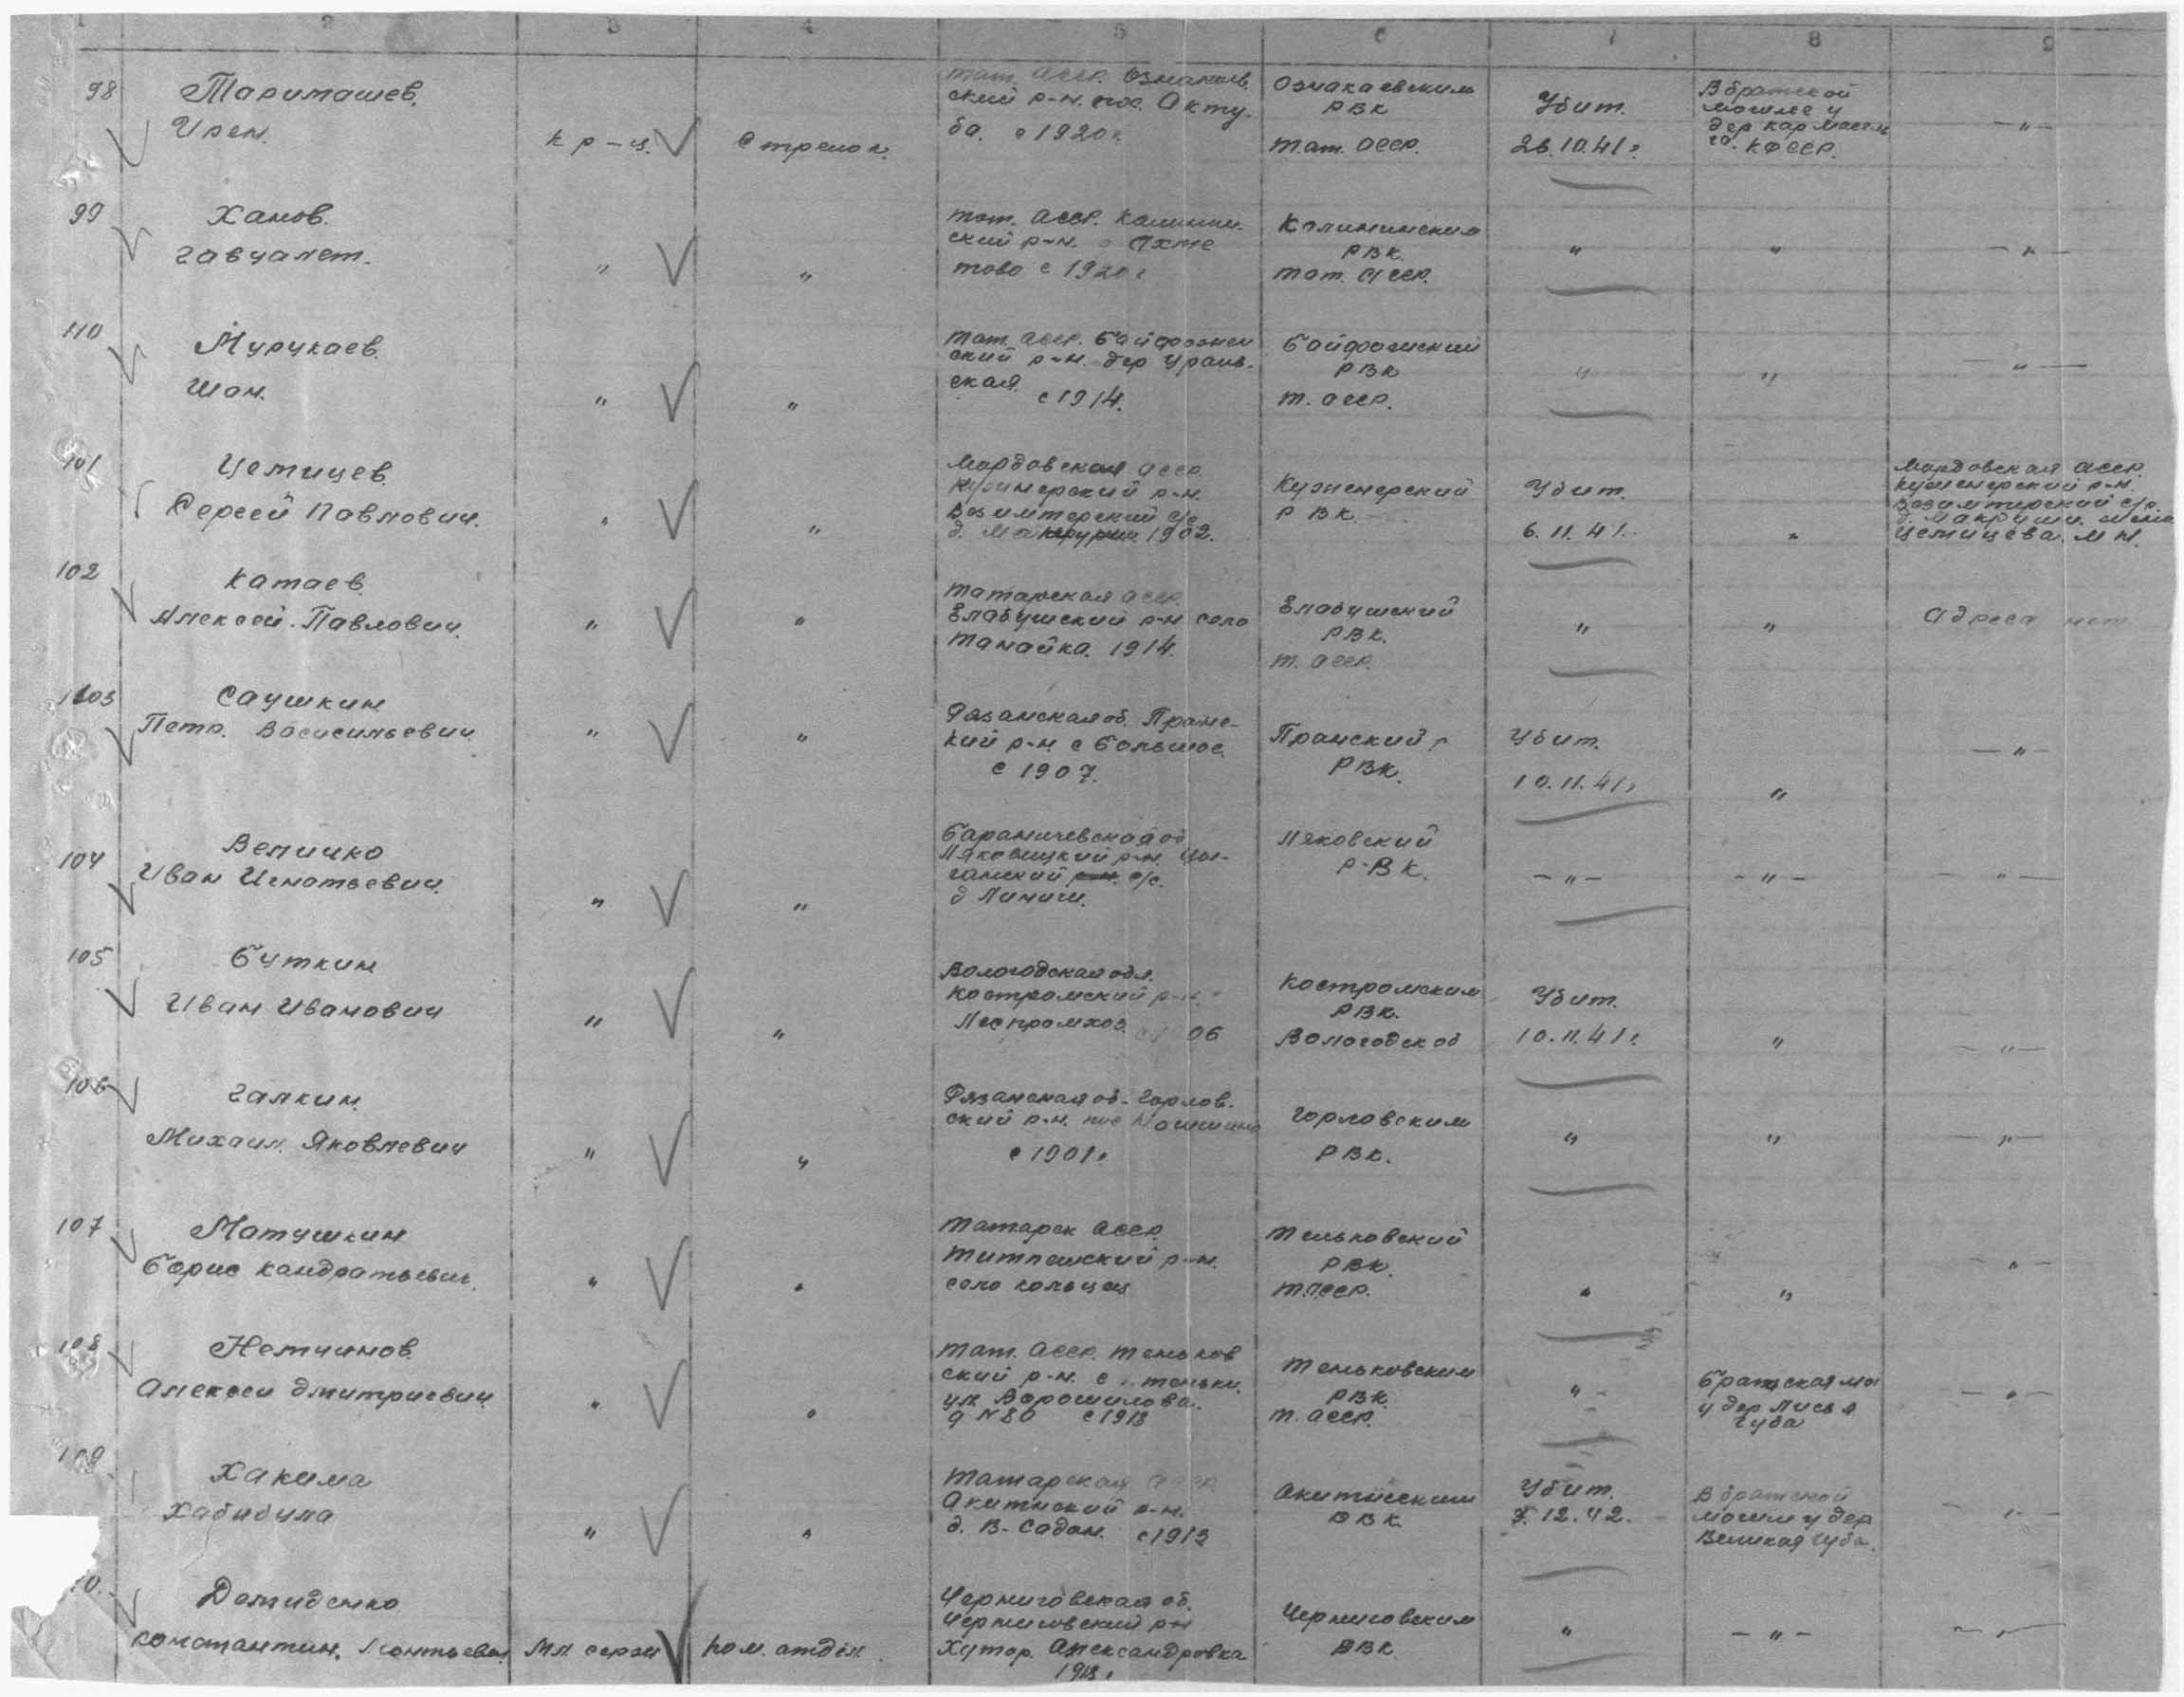 1 2 3 4 5 6 7 8 9
98 Таримашев.
Ирен.
кр-ц. Стрелок.
тат. асср. Ознакаев.
ский р-н. пос. Акту.
ба. с 1920 г.
Ознакаевским
РВК
тат. асср.
Убит.
26.10.41 г.
В братской
могиле у
дер кармасель
га. КФССР.
— " —
99 Ханов.
Гавчалет.
" "
тат. асср. калинин.
ский р-н. с Ахме
тово с 1920 г
Калининским
РВК.
тат. Асср.
" " — " —
110 Мурукаев.
Шан.
" "
тат. асср.
ский р-н. дер Ураль-
ская.
с 1914.
РВК
т. асср.
" " — " —
101 Цемицев.
Сергей Павлович.
" "
Мордовская асср.
р-н.
с/с
д. 1902.
Куженерский
РВК.
Убит.
6.11.41.
"
Мордовская асср.
куженерский р-н.
с/с.
д.
Цемицева. М Н.
102 Катаев.
Алексей. Павлович.
" "
татарская асср.
Елабушский р-н село
Танайка. 1914.
Елабушский
РВК.
т. асср.
" "
Адреса нет
103 Саушкин
Петр. Васисильевич.
" "
Рязанская об. Пронс-
кий р-н. с Большое.
с 1907.
Пронский
РВК.
Убит.
10.11.41 г
" — " —
104 Величко
Иван Игнатьевич.
" "
Бараничевская об
Ляховицкий р-н. Цы-
ганский с/с.
д Линичи.
Ляховский
Р-ВК.
— " — — " — — " —
105 Буткин
Иван Иванович
" "
Вологодская обл.
костромский р-н.
Леспромхоз. 06
Костромским
РВК.
Вологодск об
Убит.
10.11.41 г.
" — " —
106 Галкин.
Михаил. Яковлевич
" "
Рязанская об- Горлов.
ский р-н. пос
с 1901 г
Горловским
РВК.
" " — " —
107 Матушкин
Борис кандратьевич.
" "
Татарск асср.
р-н.
село кольцец
Теньковский
РВК.
т.асср.
" " — " —
108 Немчинов.
Алексеи дмитриевич
" "
тат. асср. теньков
ский р-н. с. теньки.
ул. Ворошилова.
д № 80 с 1913
Теньковским
РВК.
т. асср.
" Братская мо
у дер лисья
губа
— " —
109 Хакима
Хабибула
" "
Татарская асср
р-н.
д. В- Садан. с 1913
РВК
Убит.
12.42.
В братской
могил у дер
Великая губа.
— " —
0. Демиденко
константин. Леонтьевич
Мл. серж пом. отдел.
Черниговская об.
черниговский р-н
Хутор. Александровка
1913 г
Черниговским
РВК.
" — " — — " —